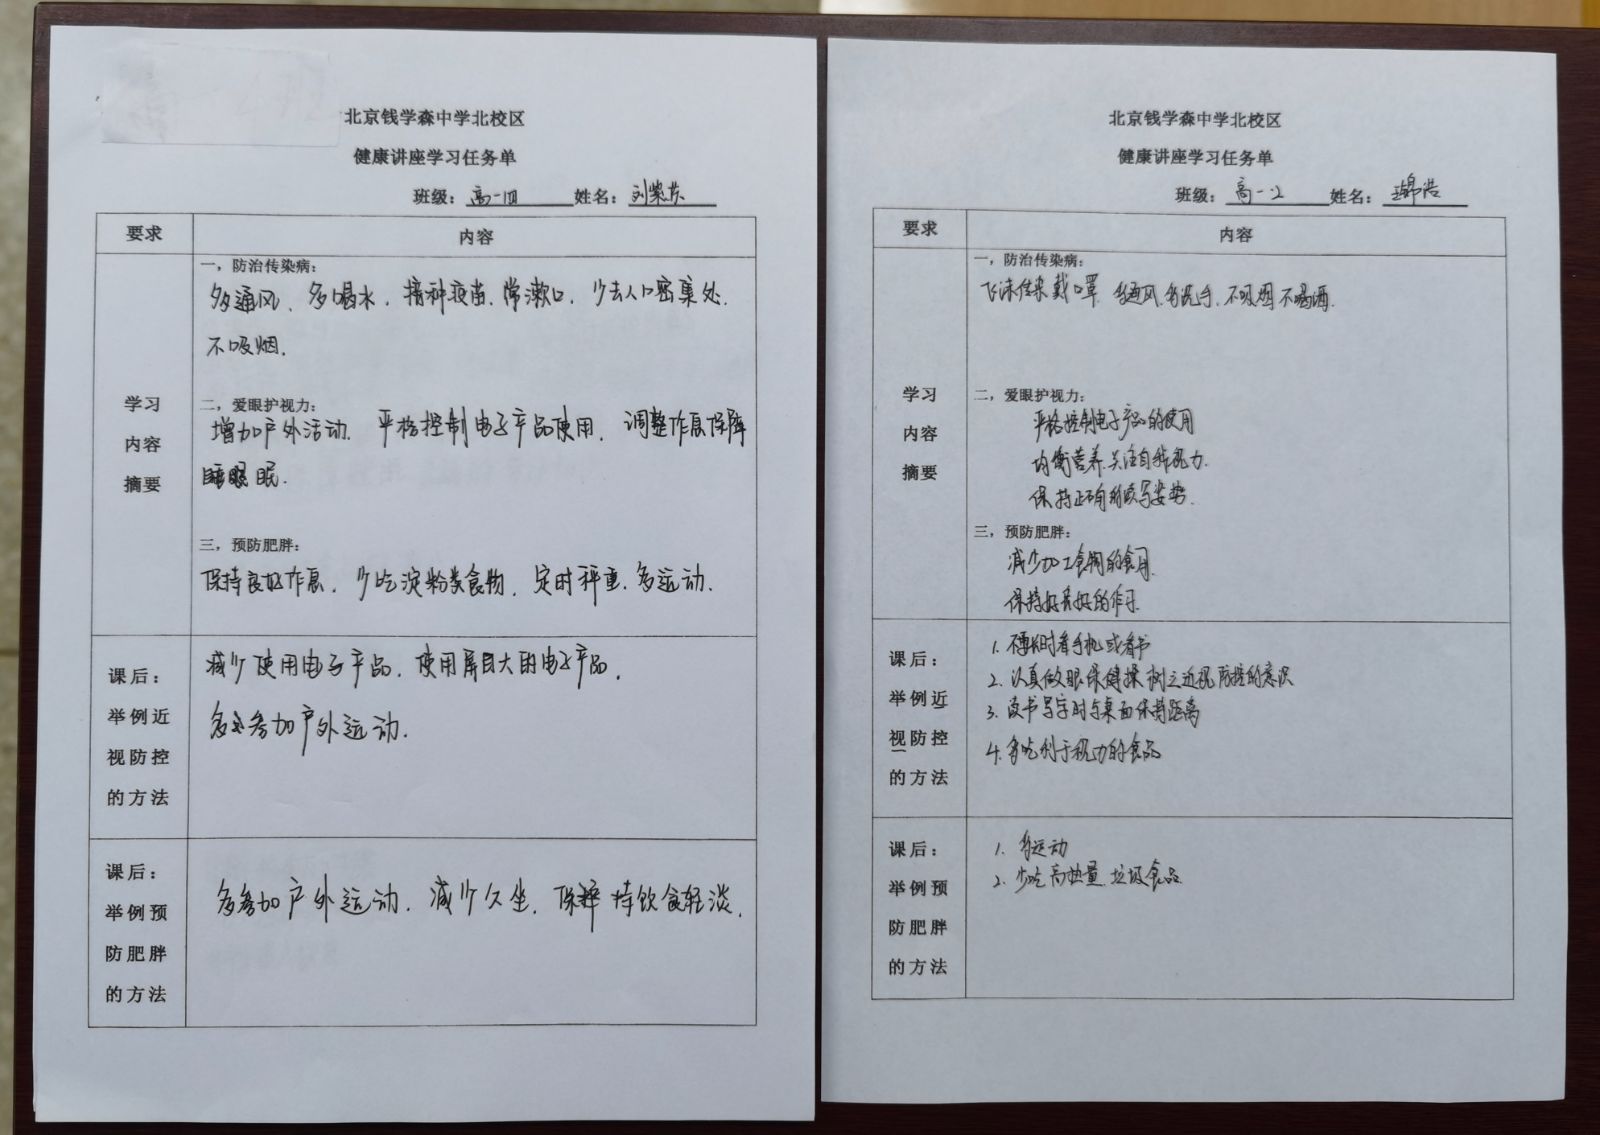 北京钱学森中学北校区
健康讲座学习任务单
班级：高一四 姓名：刘紫芸
要求 内容
学习
内容
摘要
一，防治传染病：
多通风、多喝水，接种疫苗，常漱口，少去人口密集处.
不吸烟.
二，爱眼护视力：
增加户外活动. 严格控制电子产品使用，调整作息保障
睡眠.
三，预防肥胖：
保持良好作息，少吃淀粉类食物，定时秤重，多运动.
课后：
举例近
视防控
的方法
减少使用电子产品，使用屏目大的电子产品，
多参加户外运动.
课后：
举例预
防肥胖
的方法
多参加户外运动. 减少久坐. 保持饮食轻淡.
北京钱学森中学北校区
健康讲座学习任务单
班级：高一.2 姓名：
要求 内容
学习
内容
摘要
一，防治传染病：
飞沫传染戴口罩 多通风，多洗手，不吸烟 不喝酒.
二，爱眼护视力：
严格控制电子产品的使用
均衡营养 关注自我视力.
保持正确的读写姿势.
三，预防肥胖：
减少加工食物的食用.
保持好良好的作习.
课后：
举例近
视防控
的方法
1. 不要长时看手机或看书
2. 认真做眼保健操 树立近视防控的意识
3. 读书写字时与桌面保持距离
4. 多吃利于视力的食品
课后：
举例预
防肥胖
的方法
1. 多运动
2. 少吃高热量 垃圾食品